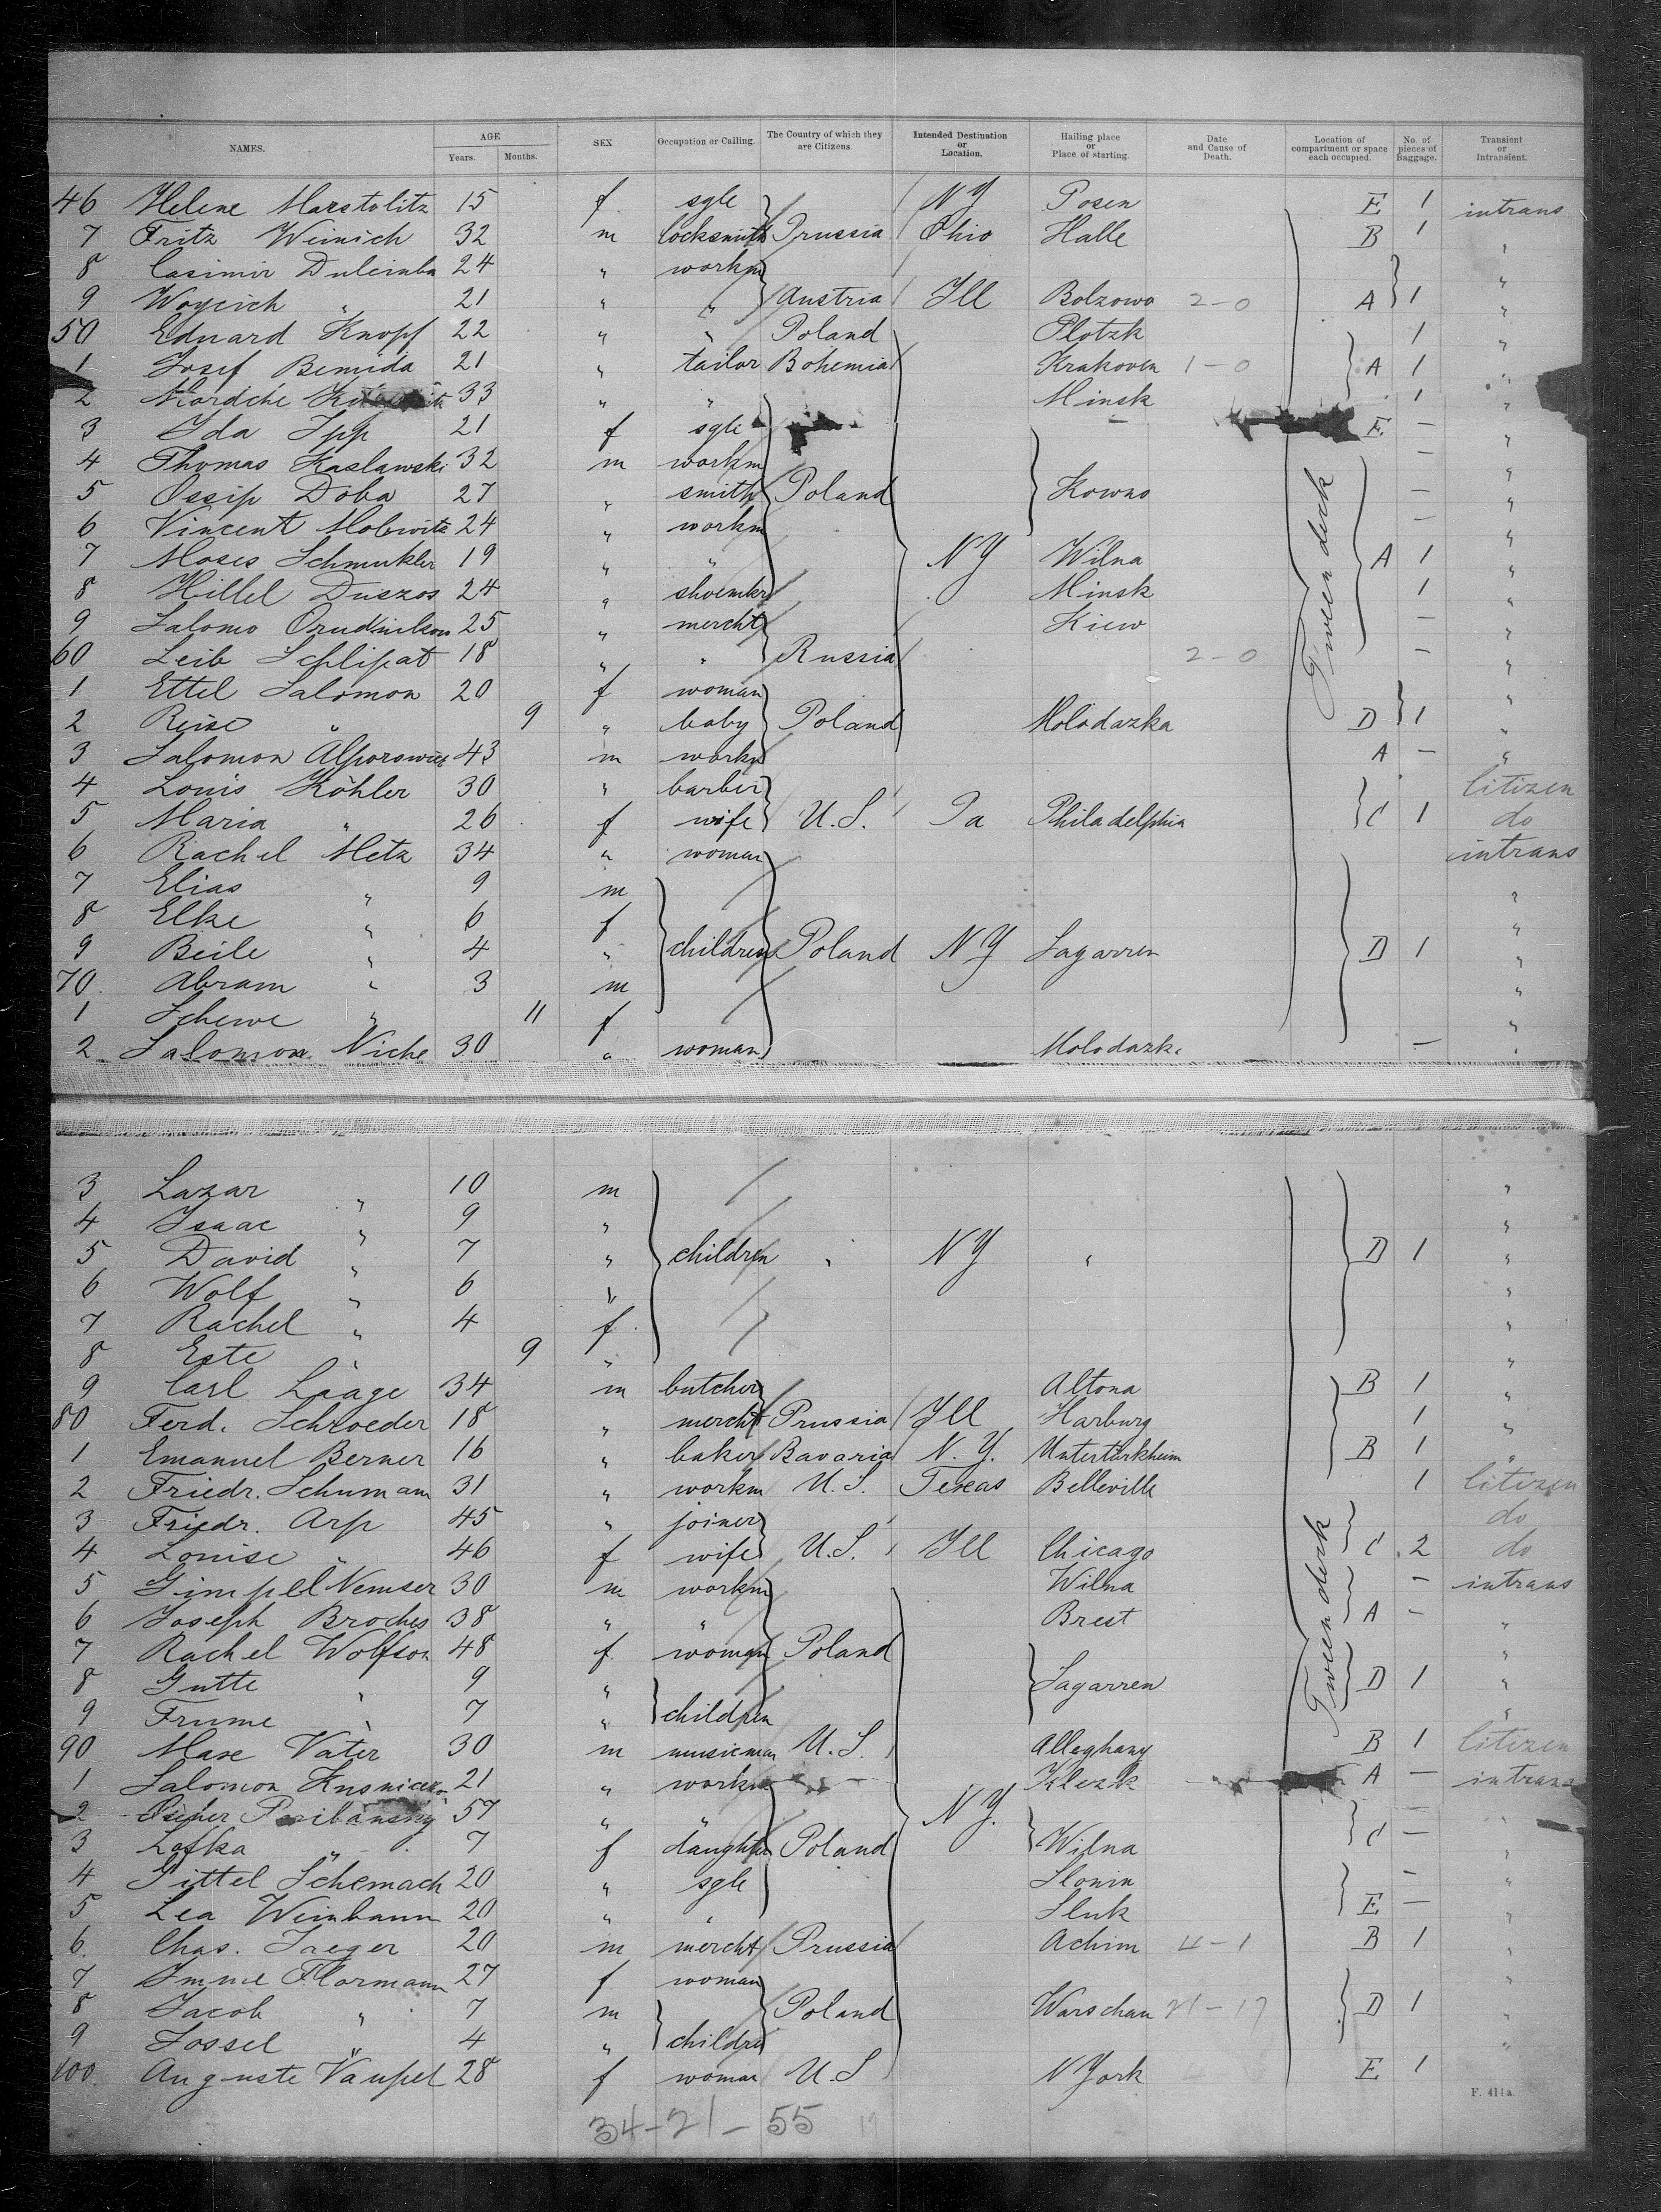 NAMES. AGE Years. Months. SEX Occupation or Calling. The Country of which they are Citizens. Intended Destination or Location. Hailing place or Place of starting. Date and Cause of Death. Location of compartment or space each occupied. No. of pieces of Baggage. Transient or Intransient.
46 Helene Marstolitz 15 f sgle NY Posen E 1 intrans
7 Fritz Weinich 32 m locksmith Prussia Ohio Halle B 1 "
8 Casimir Duleinba 24 " workm "
9 Woycich " 21 " " Austria Ill Bolzowo 2-0 A 1 "
50 Eduard Knopf 22 " " Poland Plotzk 1 "
1 Josef Bemida 21 " tailor Bohemia Krakoven 1-0 A 1 "
2 Mordche 33 " " Minsk 1 "
3 Ida Ipp 21 f sgle E - "
4 Thomas Kaslawski 32 m workm - "
5 Ossip Doba 27 " smith Poland Kowno - "
6 Vincent Mobwitz 24 " workm - "
7 Moses Schmukler 19 " " NY Wilna A 1 "
8 Hillel Duszos 24 " shoemkr Minsk 1 "
9 Salomo 25 " mercht Kiew - "
60 Leib Schlipat 18 " " Russia 2-0 - "
1 Ettel Salomon 20 f woman "
2 Reise " 9 " baby Poland Molodazka D 1 "
3 Salomon Alporowicz 43 m workm A - "
4 Louis Köhler 30 " barber Citizen
5 Maria " 26 f wife U.S. Pa Philadelphia C 1 do
6 Rachel Metz 34 " woman intrans
7 Elias " 9 m "
8 Elke " 6 f "
9 Beile " 4 " children Poland NY Sagarren D 1 "
70. Abram " 3 m "
1 Schewe " 11 f "
2 Salomon Niche 30 " woman Molodazk. - "
Tween deck
3 Lazar " 10 m "
4 Isaac " 9 " "
5 David " 7 " children " NY " D 1 "
6 Wolf " 6 " "
7 Rachel " 4 f "
8 Este " 9 " "
9 Carl Laage 34 m butcher Altona B 1 "
80 Ferd. Schroeder 18 " mercht Prussia Ill Harburg 1 "
1 Emanuel Berner 16 " baker Bavaria N.Y. Unterturkheim B 1 "
2 Friedr. Schumann 31 " workm U.S. Texas Belleville 1 Citizen
3 Friedr. Arp 45 " joiner do
4 Louise " 46 f wife U.S. Ill Chicago C 2 do
5 Gimpel Nemser 30 m workm Wilna - intrans
6 Joseph Broches 38 " " Brest A - "
7 Rachel Wolfson 48 f woman Poland "
8 Gutte " 9 " Sagarren D 1 "
9 Frume " 7 " children "
90 Max Vater 30 m musicman U.S. Alleghany B 1 Citizen
1 Salomon 21 " workm Klezk A - intrans
2 57 " " N.Y. - "
3 Lefka " 7 f daughter Poland Wilna C - "
4 Gittel Schemach 20 " sgle Slonin - "
5 Lea Weinbaum 20 " " Sluk E - "
6. Chas. Jaeger 20 m mercht Prussia Achim 4-1 B 1 "
7 Imme Flormann 27 f woman "
8 Jacob " 7 m Poland Warschau 21-17 D 1 "
9 Jossel " 4 " children "
100. Auguste Vaupel 28 f woman U.S N York E 1
Tween deck
F. 411a.
34-21-55 19